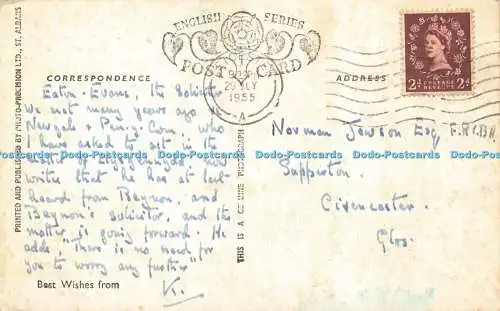 PRINTED AND PUBLISHED BY PHOTO-PRECISION LTD., ST. ALBANS
ENGLISH SERIES
POST CARD
29 JLY
1955
A
2D POSTAGE REVENUE 2D
CORRESPONDENCE
ADDRESS
Eaton-Evans, the Solicitor
we met many years ago at
Newgale & Pen-y-Cwm, who
I have asked to act in the
matter of
write that he has at last
heard from Beynon, and
Beynon's solicitor, and the
matter is going forward. He
adds, "There is no need for
you to worry any further"
Best Wishes from
K.
THIS IS A GENUINE PHOTOGRAPH
Norman Jewson Esq. F.R.I.B.A.
Sapperton.
Cirencester.
Glos.
Dodo-Postcards Dodo-Postcards Dodo-Postcards Dodo-Postcards Dodo-Postcards Dodo-Postcards